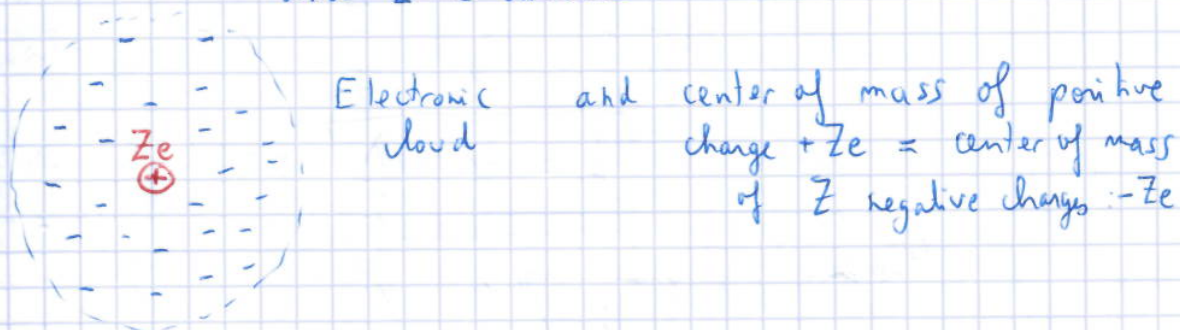 Electronic and center of mass of positive
cloud charge +Ze = center of mass
Ze of Z negative charges :-Ze
+